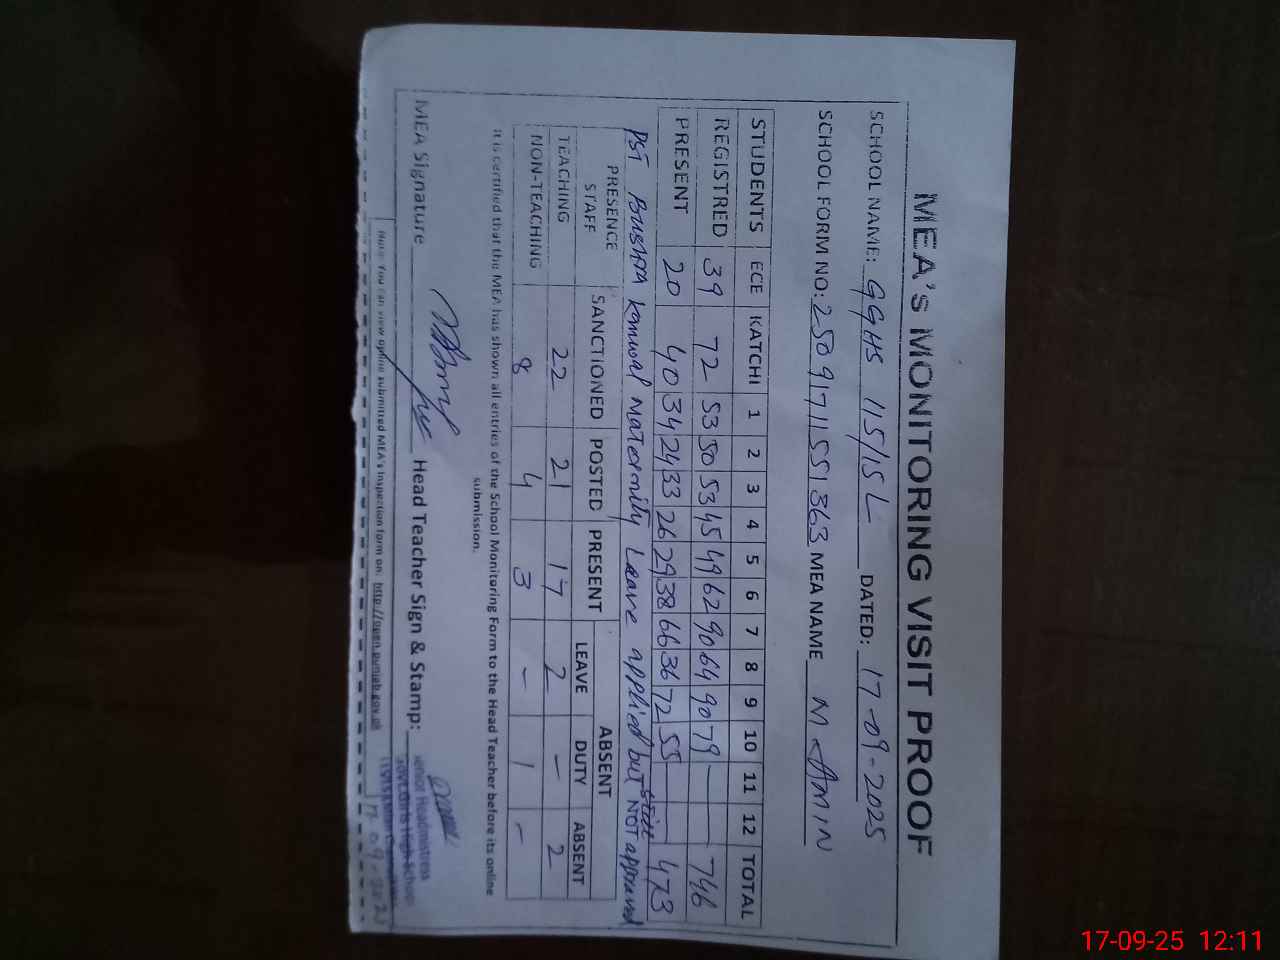 MEA's MONITORING VISIT PROOF
SCHOOL NAME: GGHS 115/15L DATED: 17-09-2025
SCHOOL FORM NO: 25091711551363 MEA NAME M AMIN
STUDENTS ECE KATCHI 1 2 3 4 5 6 7 8 9 10 11 12 TOTAL
REGISTRED 39 72 53 50 53 45 49 62 90 64 90 79 — — 746
PRESENT 20 40 34 24 33 26 29 38 66 36 72 55 473
PST Bushra Kanwal Maternity Leave applied but still NOT approved
PRESENCE STAFF SANCTIONED POSTED PRESENT ABSENT
LEAVE DUTY ABSENT
TEACHING 22 21 17 2 – 2
NON-TEACHING 8 4 3 – 1 –
It is certified that the MEA has shown all entries of the School Monitoring Form to the Head Teacher before its online
submission.
MEA Signature Head Teacher Sign & Stamp:
Senior Headmistress
Govt. Girls High School
17.09.2025
Note: You can view online submitted MEA's inspection form on: http://open.punjab.gov.pk
17-09-25 12:11